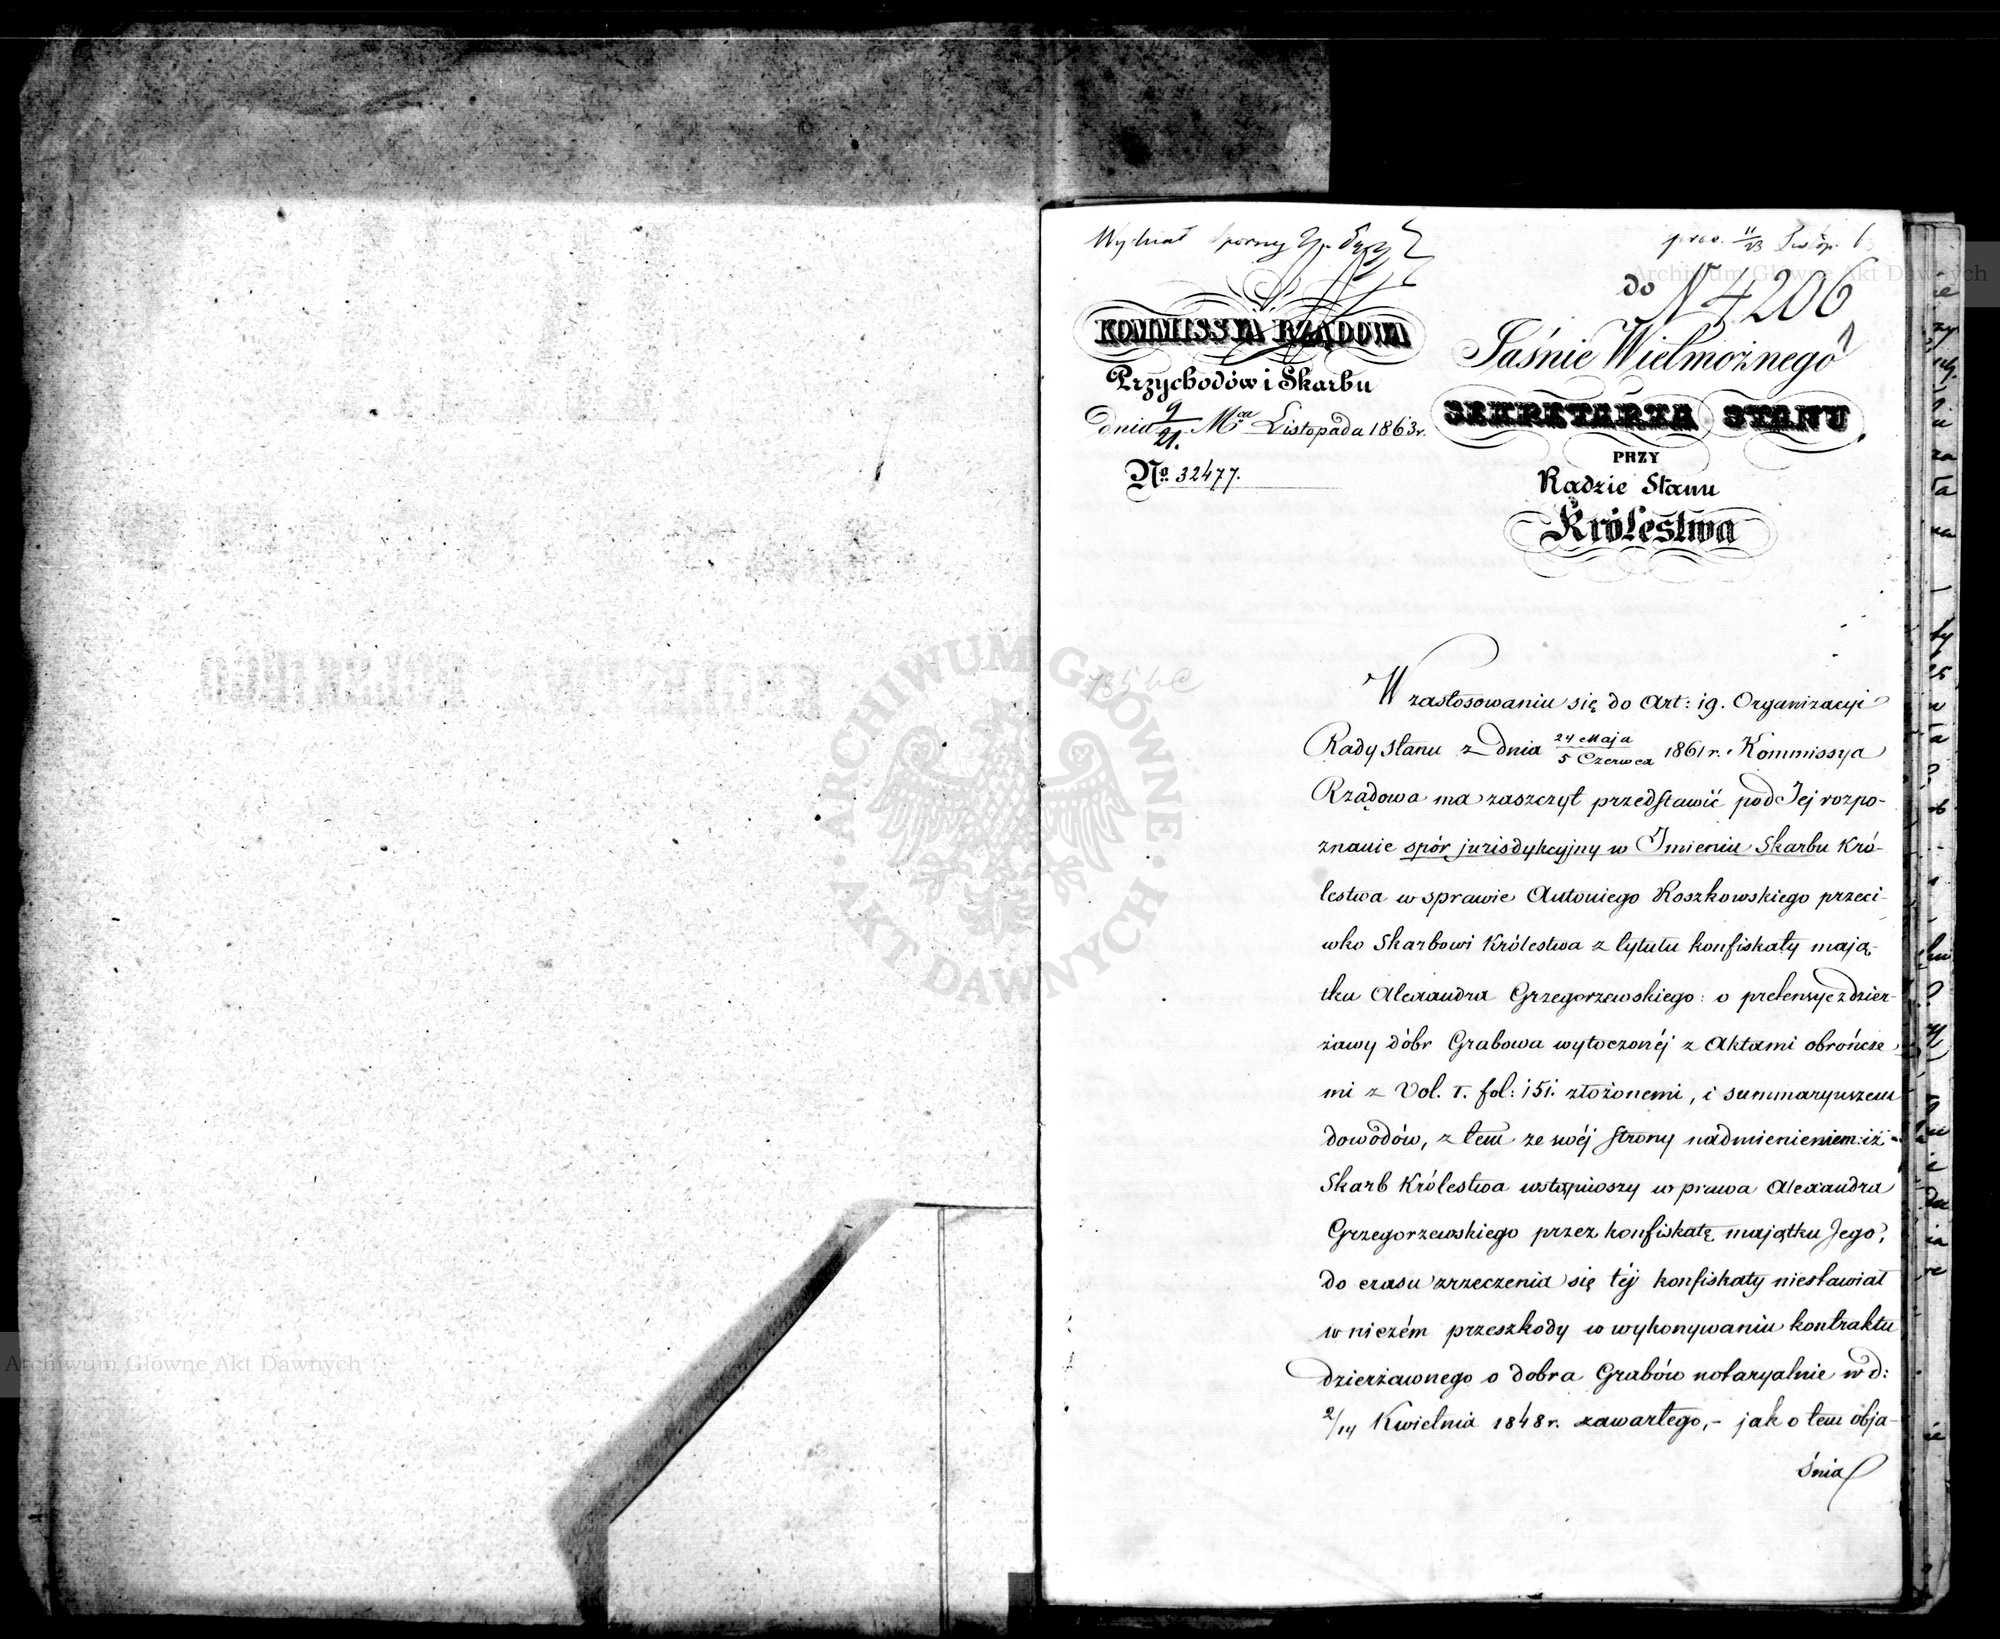 Wydział Sporny
prez. 11/23 Listop. 6
do N 4206
KOMMISSYA RZĄDOWA
Przychodów i Skarbu
dnia 9/21. Mca Listopada 1863 r.
No. 32477.
Jaśnie Wielmożnego
SEKRETARZA STANU
PRZY
Radzie Stanu
Królestwa
W zastosowaniu się do Art: 19. Organizacyi
Rady Stanu z dnia 24 Maja / 5 Czerwca 1861 r. Kommissya
Rządowa ma zaszczyt przedstawić pod Jej rozpo-
znanie spór jurisdykcyjny w Imieniu Skarbu Kró-
lestwa w sprawie Antoniego Roszkowskiego przeci-
wko Skarbowi Królestwa z tytułu konfiskaty mają-
tku Alexandra Grzegorzewskiego: o pretensye z dzier-
żawy dóbr Grabowa wytoczonéj z Aktami obrończe
mi z Vol. I. fol: 151. złożonemi, i summaryuszem
dowodów, z tem ze swéj strony nadmienieniem: iż
Skarb Królestwa wstąpiwszy w prawa Alexandra
Grzegorzewskiego przez konfiskatę majątku Jego,
do czasu zrzeczenia się téj konfiskaty niestawiał
w niczém przeszkody w wykonywaniu kontraktu
dzierżawnego o dobra Grabów notaryalnie w d:
2/14 Kwietnia 1848 r. zawartego, - jak o tem obja-
śnia
ARCHIWUM GŁÓWNE AKT DAWNYCH
Archiwum Główne Akt Dawnych
Archiwum Główne Akt Dawnych